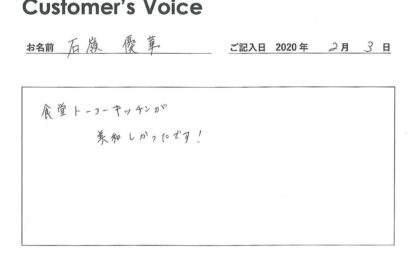 Customer's Voice
お名前 石嶺 優華 ご記入日 2020年 2月 3日
食堂トーコーキッチンが
美味しかったです!